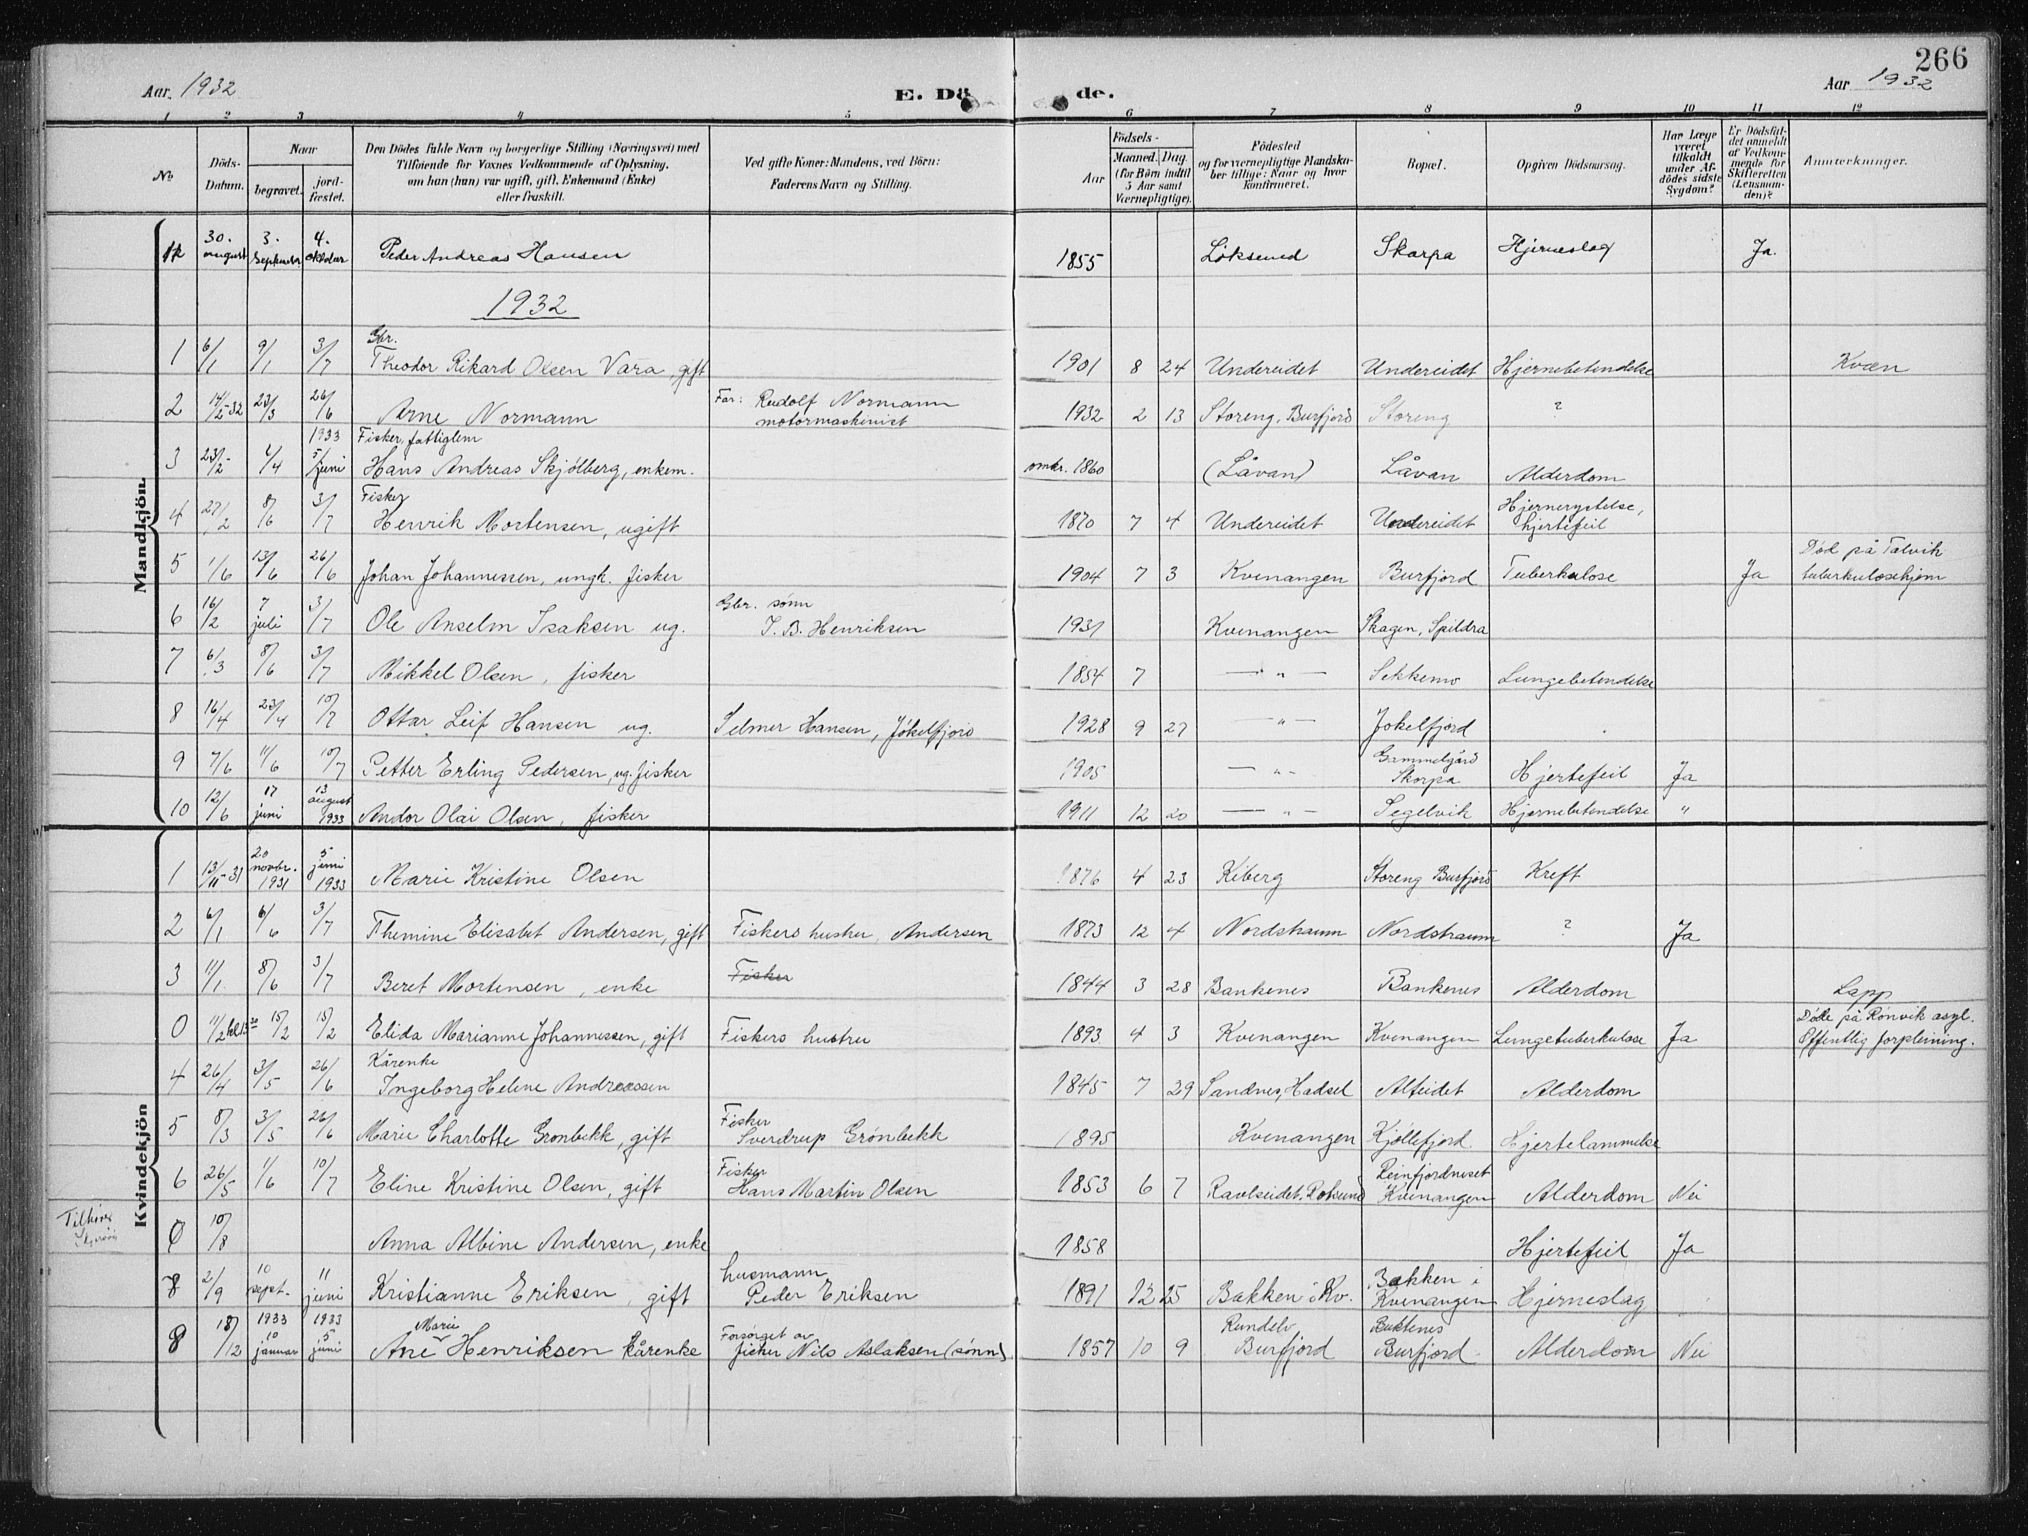 266
Aar. 1932
E. Dö
de.
Aar 1932
1 2 3 4 5 6 7 8 9 10 11 12
No
Döds-
Datum.
Naar
begravet.
jord-
fæstet.
Den Dödes fulde Navn og borgerlige Stilling (Næringsvei) med
Tilföiende for Voxnes Vedkommende af Oplysning,
om han (hun) var ugift, gift, Enkemand (Enke)
eller fraskilt.
Ved gifte Koner: Mandens, ved Börn:
Faderens Navn og Stilling.
Födsels-
Aar
Maaned. Dag.
(for Börn indtil
5 Aar samt
Værnepligtige).
Födested
og for værnepligtige Mandska-
ber tillige: Naar og hvor
konfirmeret.
Bopæl.
Opgiven Dödsaarsag.
Har Læge
været
tilkaldt
under Af-
dödes sidste
Sygdom?
Er Dödsfal-
det anmeldt
af Vedkom-
mende for
Skifteretten
(Lensman-
den)?
Anmærkninger.
Mandkjön.
30. august 3. September 4. oktober Peder Andreas Hansen 1855 Löksund Skorpa Hjerneslag Ja.
1932
Gbr.
1 6/1 9/1 3/7 Theodor Rikard Olsen Vara, gift 1901 8 24 Undereidet Undereidet Hjernebetendelse Kvæn
2 14/2-32 23/3 26/6 Arne Normann Far: Rudolf Normann 1932 2 13 Storeng, Burfjord Storeng ?
motormaskinist
1933 Fisker, fattiglem
3 23/2 4/4 5/juni Hans Andreas Skjølberg, enkem. omkr. 1860 (Låvan) Låvan Alderdom
Fisker
4 27/2 8/6 3/7 Henrik Mortensen, ugift 1870 7 4 Undereidet Undereidet Hjernerystelse,
hjertefeil
5 1/6 13/6 26/6 Johan Johannessen, ungk. fisker 1904 7 3 Kvenangen Burfjord Tuberkulose Ja Død på Talvik
tuberkulosehjem
6 16/2 7 juli 3/7 Ole Anselm Isaksen ug. Gbr. sønn
I. B. Henriksen 1931 Kvenangen Skagen, Spildra
7 6/3 8/6 3/7 Mikkel Olsen, fisker 1854 7 — „ — Sekkemo Lungebetendelse
8 16/4 23/4 10/7 Ottar Leif Hansen ug. Selmer Hansen, Jökelfjord 1928 9 27 — „ — Jokelfjord
9 7/6 11/6 10/7 Petter Erling Pedersen, ug. fisker 1905 — „ — Gammelgård
Skorpa Hjertefeil Ja
10 12/6 17 juni 13 august 1933 Andor Olai Olsen, fisker 1911 12 20 — „ — Segelvik Hjernebetendelse „
Kvindekjön
1 13/11-31 20 novbr. 1931 5 juni 1933 Marie Kristine Olsen 1876 4 23 Kiberg Storeng Burfjord Kreft
2 6/1 6/6 3/7 Themine Elisabet Andersen, gift Fiskers hustru, Andersen 1873 12 4 Nordstraum Nordstraum ? Ja
3 11/1 8/6 3/7 Beret Mortensen, enke Fisker 1844 3 28 Bankenes Bankenes Alderdom Lapp
0 11/2 15/2 15/2 Elida Marianne Johannessen, gift Fiskers hustru 1893 4 3 Kvenangen Kvenangen Lungetuberkulose Ja Døde på Rønvik asyl.
Offentlig forpleining.
Kårenke
4 26/4 3/5 26/6 Ingeborg Helene Andreassen 1845 7 29 Sandnes, Hadsel Alteidet Alderdom
5 8/3 3/5 26/6 Marie Charlotte Gronbekk, gift Fisker
Sverdrup Grønbekk 1895 Kvenangen Kjøllefjord Hjertelammelse
6 26/5 1/6 10/7 Eline Kristine Olsen, gift Fisker
Hans Martin Olsen 1853 6 7 Ravleidet, Rotsund Reinfjordneset
Kvenangen Alderdom Nei
Tilhører
0 10/8 Anna Albine Andersen, enke 1858 Hjertefeil Ja
7 2/9 10 sept. 11 juni Kristianne Eriksen, gift husmann
Peder Eriksen 1891 12 25 Bakken i Kv. Bakken i
Kvenangen Hjerneslag
8 18/12 1933 10 januar 1933 5 juni Ane Marie Henriksen kårenke Forsørget av
fisker Nils Aslaksen (sønn) 1857 10 9 Rundelv
Burfjord Buktenes
Burfjord Alderdom Nei